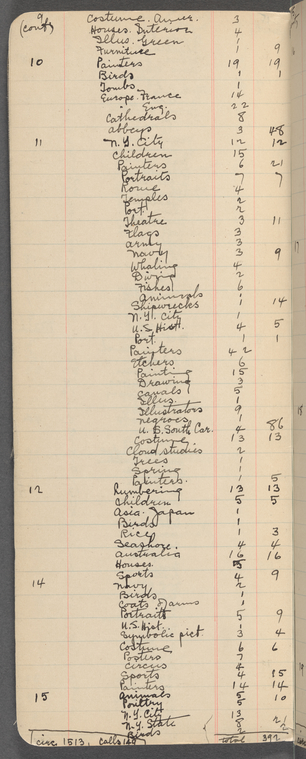 9 (cont) Costume. Amer. 3
Houses. Interior 4
Illus. Green 1
Furniture 1 9
10 Painters 19 19
Birds 1 1
Tombs 1
Europe. France 14
" Eng. 22
Cathedrals 8
Abbeys 3 48
11 N.Y. City 12 12
Children 15
Painters 6 21
Portraits 7 7
Rome 4
Temples 2
Port. 2
Theatre 3 11
Flags 3
Army 3
Navy 3 9
Whaling 4
Diving 2
Fishes 6
Animals 1
Shipwrecks 1 14
N.Y. City 1
U.S. Hist. 4 5
Port. 1 1
Painters 42
Etchers 6
Painting 15
Drawing 3
Canals 5
Illus. 1
Illustrators 9
Negroes 1
U.S. South Car. 4 86
Costume 13 13
Cloud studies 2
Trees 1
Spring 1
Painters. 1 5
12 Lumbering 13 13
Children 5 5
Asia. Japan 1
Birds 1
Rice 1 3
Seashore. 4 4
Australia 16 16
Houses. 5
Sports 4 9
14 Navy 2
Birds 1
Coats of arms 1
Portraits 5 9
U.S. Hist. 1
Symbolic pict. 3 4
Costume 6 6
Posters 7
Circus 4
Sports 4 15
Painters 14 14
15 Animals 5 10
Poultry 5
N.Y. City 13
N.Y. State 8 21
Birds 2 2
Circ 1513, Calls Total 392